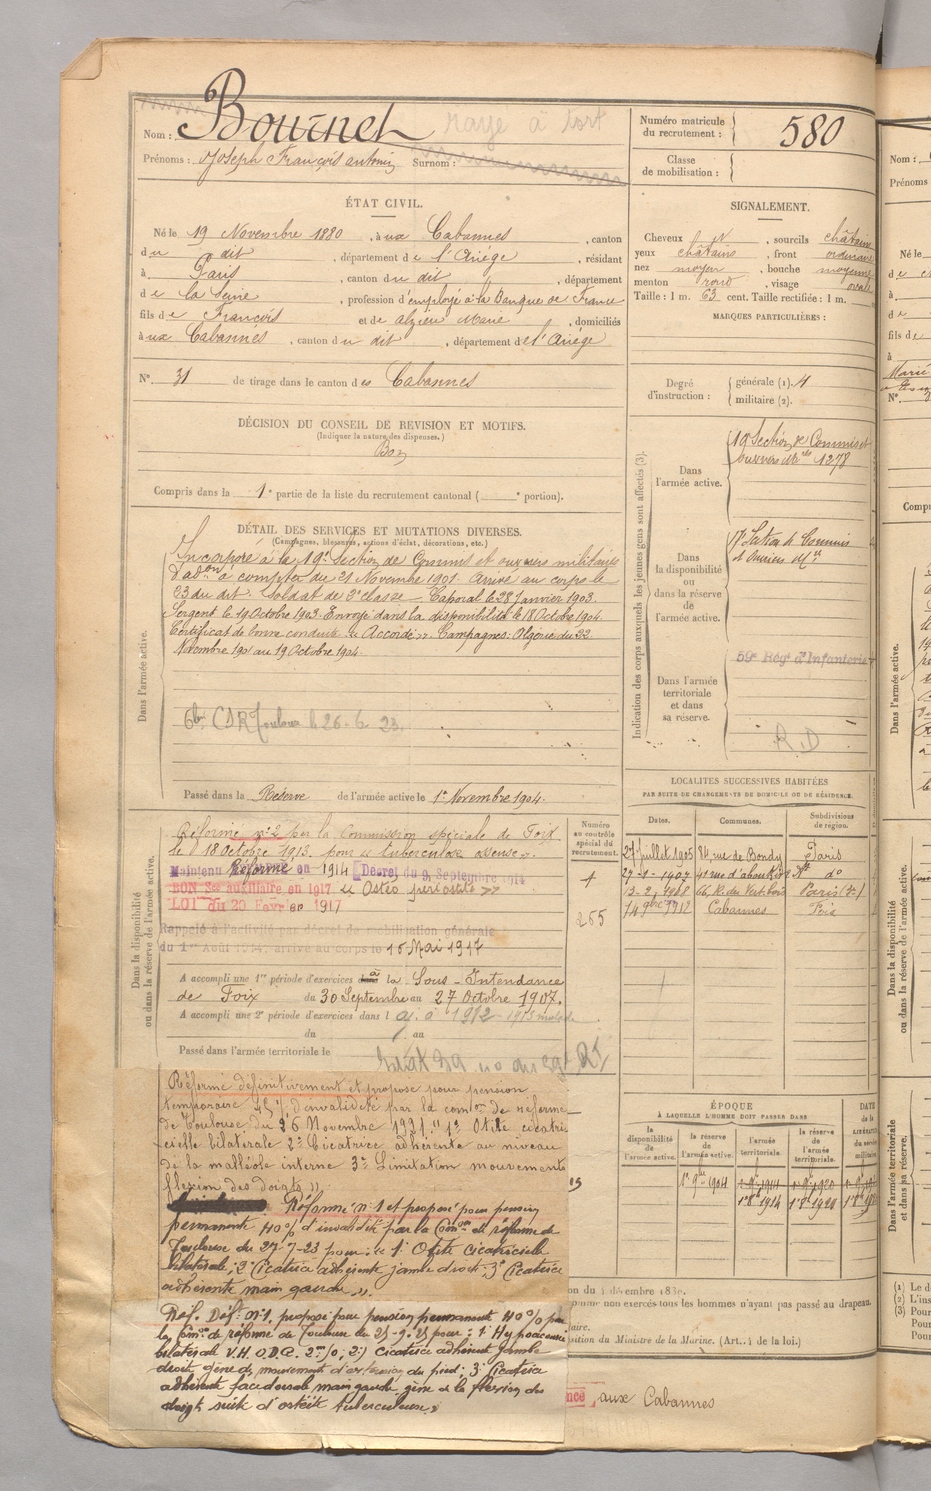 Nom : Bournet rayé à tort
Prénoms : Joseph François antonin Surnom :
Numéro matricule du recrutement : 580
Classe de mobilisation :
ÉTAT CIVIL.
Né le 19 Novembre 1880, à ux Cabannes, canton
du dit, département de l'Ariège, résidant
à Paris, canton du dit, département
de la Seine, profession d'employé à la Banque de France
fils de François et de alzieu Marie, domiciliés
à ux Cabannes, canton du dit, département de l'Ariège
N° 31 de tirage dans le canton des Cabannes
SIGNALEMENT.
Cheveux et, sourcils châtains
yeux châtains, front ordinaire
nez moyen, bouche moyenne
menton rond, visage ovale
Taille : 1 m. 63 cent. Taille rectifiée : 1 m.
MARQUES PARTICULIÈRES :
Degré d'instruction : générale (1). 4
militaire (2).
DÉCISION DU CONSEIL DE REVISION ET MOTIFS.
(Indiquer la nature des dispenses.)
Bon
Compris dans la 1e partie de la liste du recrutement cantonal ( e portion).
DÉTAIL DES SERVICES ET MUTATIONS DIVERSES.
(Campagnes, blessures, actions d'éclat, décorations, etc.)
Dans l'armée active.
Incorporé à la 19e Section de Commis et ouvriers militaires
d'adon à compter du 21 Novembre 1901. Arrivé au corps le
23 du dit. Soldat de 2e classe. Caporal le 28 Janvier 1903.
Sergent le 19 Octobre 1903. Envoyé dans la disponibilité le 18 Octobre 1904.
Certificat de bonne conduite "Accordé". Campagnes: Algérie du 22
Novembre 1901 au 19 Octobre 1904
CDR Toulouse le 26-6 23.
Passé dans la Réserve de l'armée active le 1er Novembre 1904.
Indication des corps auxquels les jeunes gens sont affectés (3).
Dans l'armée active.
19 Section de Commis et
ouvriers Mres 1278
Dans la disponibilité ou dans la réserve de l'armée active.
17e Section de Commis
et ouvriers Mres
Dans l'armée territoriale et dans sa réserve.
59e Rég d'Infanterie
R D
Dans la disponibilité ou dans la réserve de l'armée active.
Numéro au contrôle spécial du recrutement.
1
265
Réformé n° 2 par la Commission spéciale de Foix
le 18 Octobre 1913. pour "tuberculose osseuse".
Maintenu Réformé en 1914 Décret du 9 Septembre 1914
BON Sce auxiliaire en 1917 "Ostéo périostite"
LOI du 20 Février 1917
Rappelé à l'activité par décret de mobilisation générale
du 1er Août 1914, arrivé au corps le 15 Mai 1917
A accompli une 1re période d'exercices à la Sous-Intendance
de Foix du 30 Septembre au 27 Octobre 1907.
A accompli une 2e période d'exercices dans l aj. à 1912 1913 malade
du au
Passé dans l'armée territoriale le
LOCALITÉS SUCCESSIVES HABITÉES
PAR SUITE DE CHANGEMENTS DE DOMICILE OU DE RÉSIDENCE.
Dates. Communes. Subdivisions de région.
27 juillet 1905 84, rue de Bondy Paris
27-1-1907 41 rue d'aboukir 2 do
13-2-1908 66, R. du Vertbois Paris
14 9bre 1912 Cabannes Foix
ÉPOQUE
À LAQUELLE L'HOMME DOIT PASSER DANS
la disponibilité de l'armée active. la réserve de l'armée active. l'armée territoriale. la réserve de l'armée territoriale. DATE de la LIBÉRATION du service militaire
1er 9bre 1904 1er 9bre 1914 1er 9bre 1920
1er 8bre 1914 1er 8bre 1920
Réformé définitivement et proposé pour pension
temporaire 45% d'invalidité par la comon de réforme
de Toulouse du 26 Novembre 1921 "1° Otite cicatri
cielle bilatérale 2° Cicatrice adhérente au niveau
de la malléole interne 3° Limitation mouvements
flexion des doigts".
Réformé n° 1 et proposé pour pension
permanente 40% d'invalidité par la Comon de réforme de
Toulouse du 27-7-23 pour: "1° Otite cicatricielle
bilatérale; 2° Cicatrice adhérente jambe droite; 3° Cicatrice
adhérente main gauche".
Réf. Défve n° 1, proposé pour pension permanente 40% par
la Comon de réforme de Toulouse du 25-9-25 pour: 1° Hypoacousie
bilatérale V.H. O.D.G. 2m/0; 2°) Cicatrice adhérente jambe
droite gêne de mouvement d'extension du pied; 3° Cicatrice
adhérente face dorsale main gauche, gêne de la flexion des
doigts suite d'ostéite tuberculeuse.
on du 4 décembre 188
omme non exercés tous les hommes n'ayant pas passé au drapeau.
aire.
sition du Ministre de la Marine. (Art. 4 de la loi.)
nce, aux Cabannes